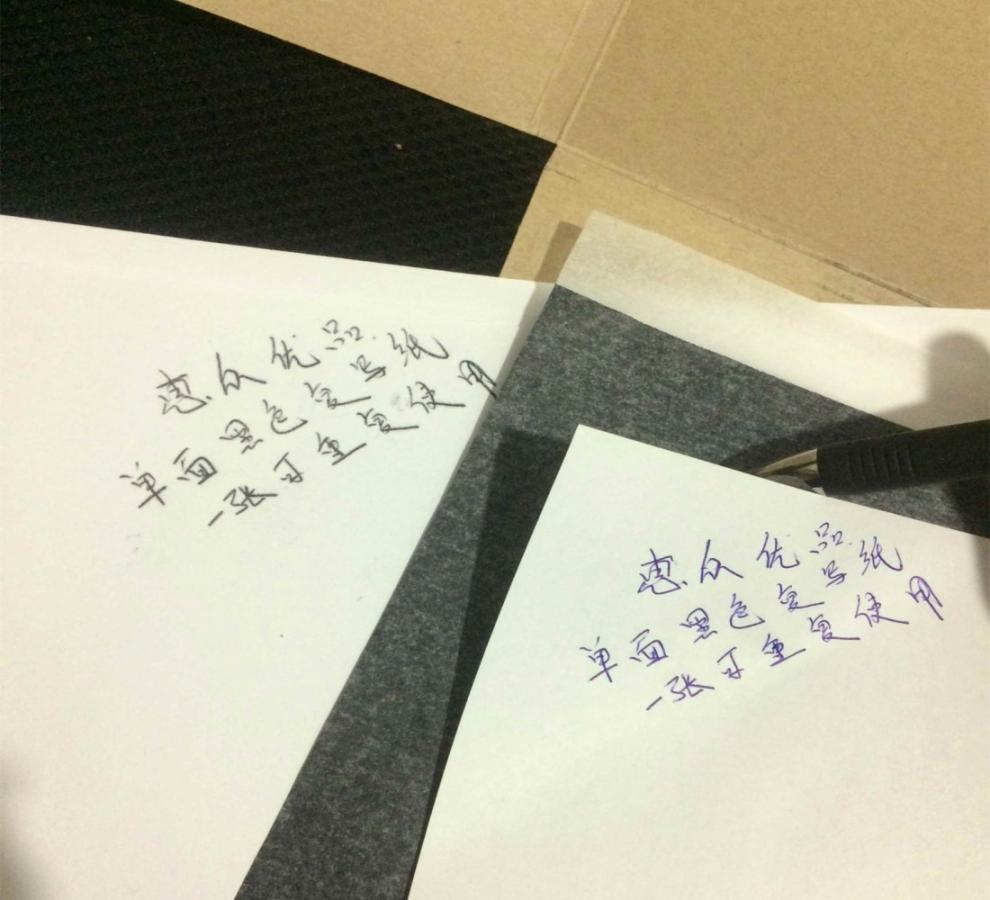 惠众优品
单面黑色复写纸
一张可重复使用
惠众优品
单面黑色复写纸
一张可重复使用